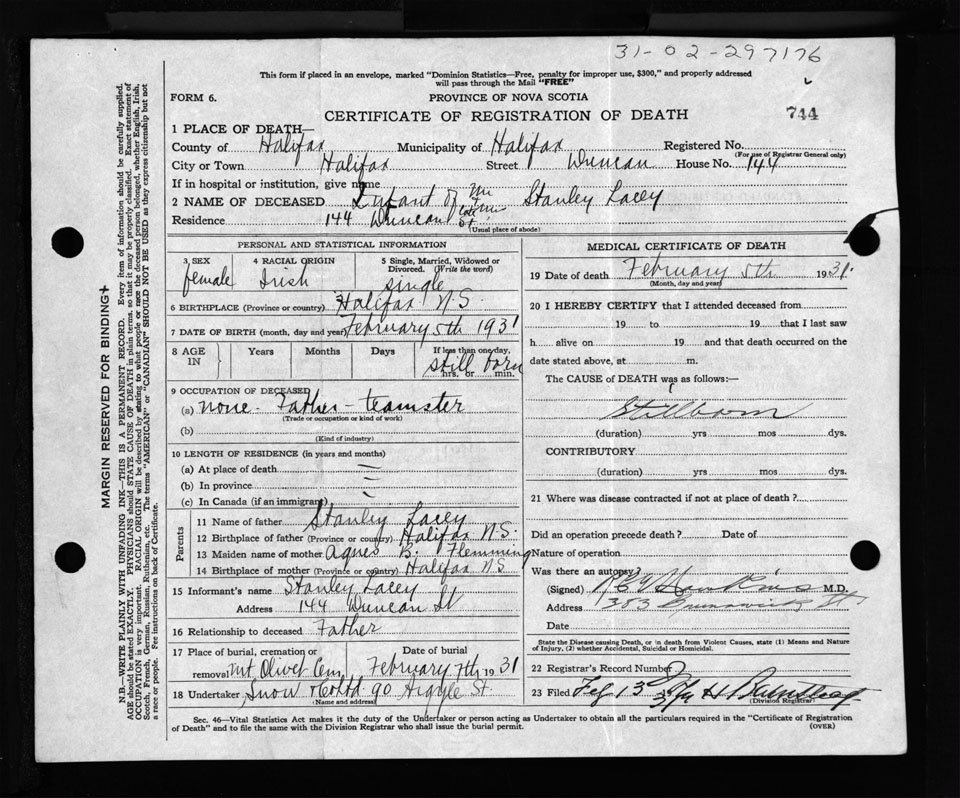 31-02-297176
This form if placed in an envelope, marked "Dominion Statistics—Free, penalty for improper use, $300," and properly addressed
will pass through the Mail "FREE"
FORM 6.
PROVINCE OF NOVA SCOTIA
CERTIFICATE OF REGISTRATION OF DEATH
744
1 PLACE OF DEATH—
County of Halifax Municipality of Halifax Registered No.
(For use of Registrar General only)
City or Town Halifax Street Duncan House No. 144
If in hospital or institution, give name
2 NAME OF DECEASED Infant of Mr Stanley Lacey
Residence 144 Duncan St
(Usual place of abode)
PERSONAL AND STATISTICAL INFORMATION
3 SEX female
4 RACIAL ORIGIN Irish
5 Single, Married, Widowed or
Divorced. (Write the word)
single
6 BIRTHPLACE (Province or country) Halifax N.S
7 DATE OF BIRTH (month, day and year) February 5th 1931
8 AGE IN Years Months Days If less than one day, still born hrs. or min.
9 OCCUPATION OF DECEASED
(a) none - Father - teamster
(Trade or occupation or kind of work)
(b)
(Kind of industry)
10 LENGTH OF RESIDENCE (in years and months)
(a) At place of death —
(b) In province —
(c) In Canada (if an immigrant) —
Parents
11 Name of father Stanley Lacey
12 Birthplace of father (Province or country) Halifax N.S.
13 Maiden name of mother Agnes B. Flemming
14 Birthplace of mother (Province or country) Halifax N.S
15 Informant's name Stanley Lacey
Address 144 Duncan St
16 Relationship to deceased Father
17 Place of burial, cremation or
removal Mt Olivet Cem
Date of burial
February 7th 1931
18 Undertaker Snow & Co Ltd 90 Argyle St.
(Name and address)
MEDICAL CERTIFICATE OF DEATH
19 Date of death February 5th 1931.
(Month, day and year)
20 I HEREBY CERTIFY that I attended deceased from
19 to 19 that I last saw
h alive on 19 and that death occurred on the
date stated above, at m.
The CAUSE of DEATH was as follows:—
Stillborn
(duration) yrs mos dys.
CONTRIBUTORY
(duration) yrs mos dys.
21 Where was disease contracted if not at place of death?
Did an operation precede death? Date of
Nature of operation
Was there an autopsy?
(Signed) M.D.
Address 383 Brunswick St
Date
State the Disease causing Death, or in death from Violent Causes, state (1) Means and Nature
of Injury, (2) whether Accidental, Suicidal or Homicidal.
22 Registrar's Record Number
23 Filed Feb 13
(Division Registrar)
Sec. 46—Vital Statistics Act makes it the duty of the Undertaker or person acting as Undertaker to obtain all the particulars required in the "Certificate of Registration
of Death" and to file the same with the Division Registrar who shall issue the burial permit.
(OVER)
MARGIN RESERVED FOR BINDING
N.B.—WRITE PLAINLY WITH UNFADING INK—THIS IS A PERMANENT RECORD. Every item of information should be carefully supplied.
AGE should be stated EXACTLY. PHYSICIANS should STATE CAUSE OF DEATH in plain terms, so that it may be properly classified. Exact statement of
OCCUPATION is very important. RACIAL ORIGIN will be described by stating to what people or race the deceased person belonged, whether English, Irish,
Scotch, French, German, Russian, Ruthenian, etc. The terms "AMERICAN" or "CANADIAN" SHOULD NOT BE USED as they express citizenship but not
a race or people. See instructions on back of Certificate.